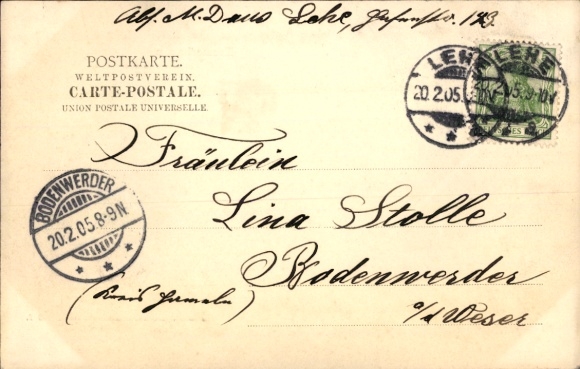 Abs. M. Daus Lehe, Hafenstr. 123.
POSTKARTE.
WELTPOSTVEREIN.
CARTE-POSTALE.
UNION POSTALE UNIVERSELLE.
LEHE
20.2.05.
LEHE
Fräulein
Lina Stolle
Bodenwerder
a/d Weser
(Kreis Hameln)
BODENWERDER
20.2.05.8-9N